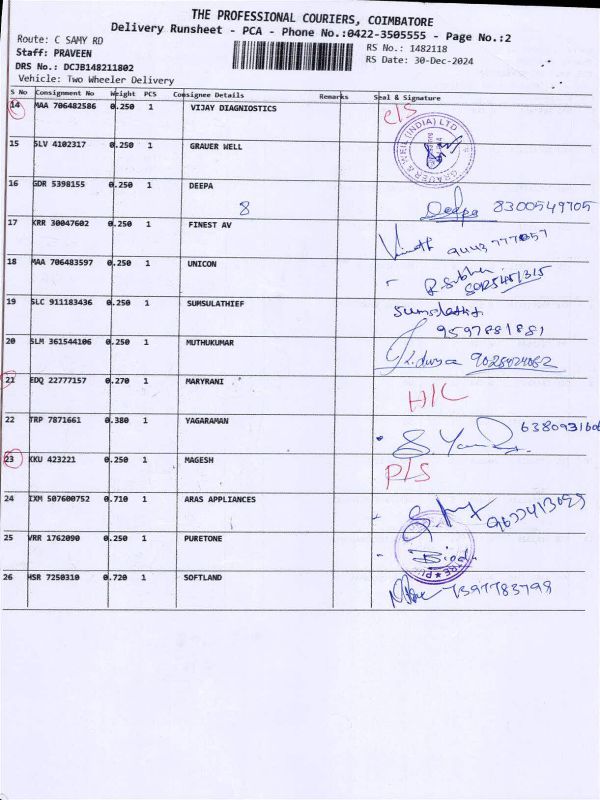 THE PROFESSIONAL COURIERS, COIMBATORE
Delivery Runsheet - PCA - Phone No.:0422-3505555 - Page No.:2
Route: C SAMY RD
RS No.: 1482118
Staff: PRAVEEN
RS Date: 30-Dec-2024
DRS No.: DCJB148211802
Vehicle: Two Wheeler Delivery
S No Consignment No Weight PCS Consignee Details Remarks Seal & Signature
14 MAA 706482586 0.250 1 VIJAY DIAGNIOSTICS C/S
15 SLV 4102317 0.250 1 GRAUER WELL
16 GDR 5398155 0.250 1 DEEPA Deepa 8300549705
8
17 KRR 30047602 0.250 1 FINEST AV
18 MAA 706483597 0.250 1 UNICON
19 SLC 911183436 0.250 1 SUMSULATHIEF
9597881881
20 SLM 361544106 0.250 1 MUTHUKUMAR
21 EDQ 22777157 0.270 1 MARYRANI H/C
22 TRP 7871661 0.380 1 YAGARAMAN
23 KKU 423221 0.250 1 MAGESH P/S
24 IXM 507600752 0.710 1 ARAS APPLIANCES
25 VRR 1762090 0.250 1 PURETONE
26 HSR 7250310 0.720 1 SOFTLAND 7397783798